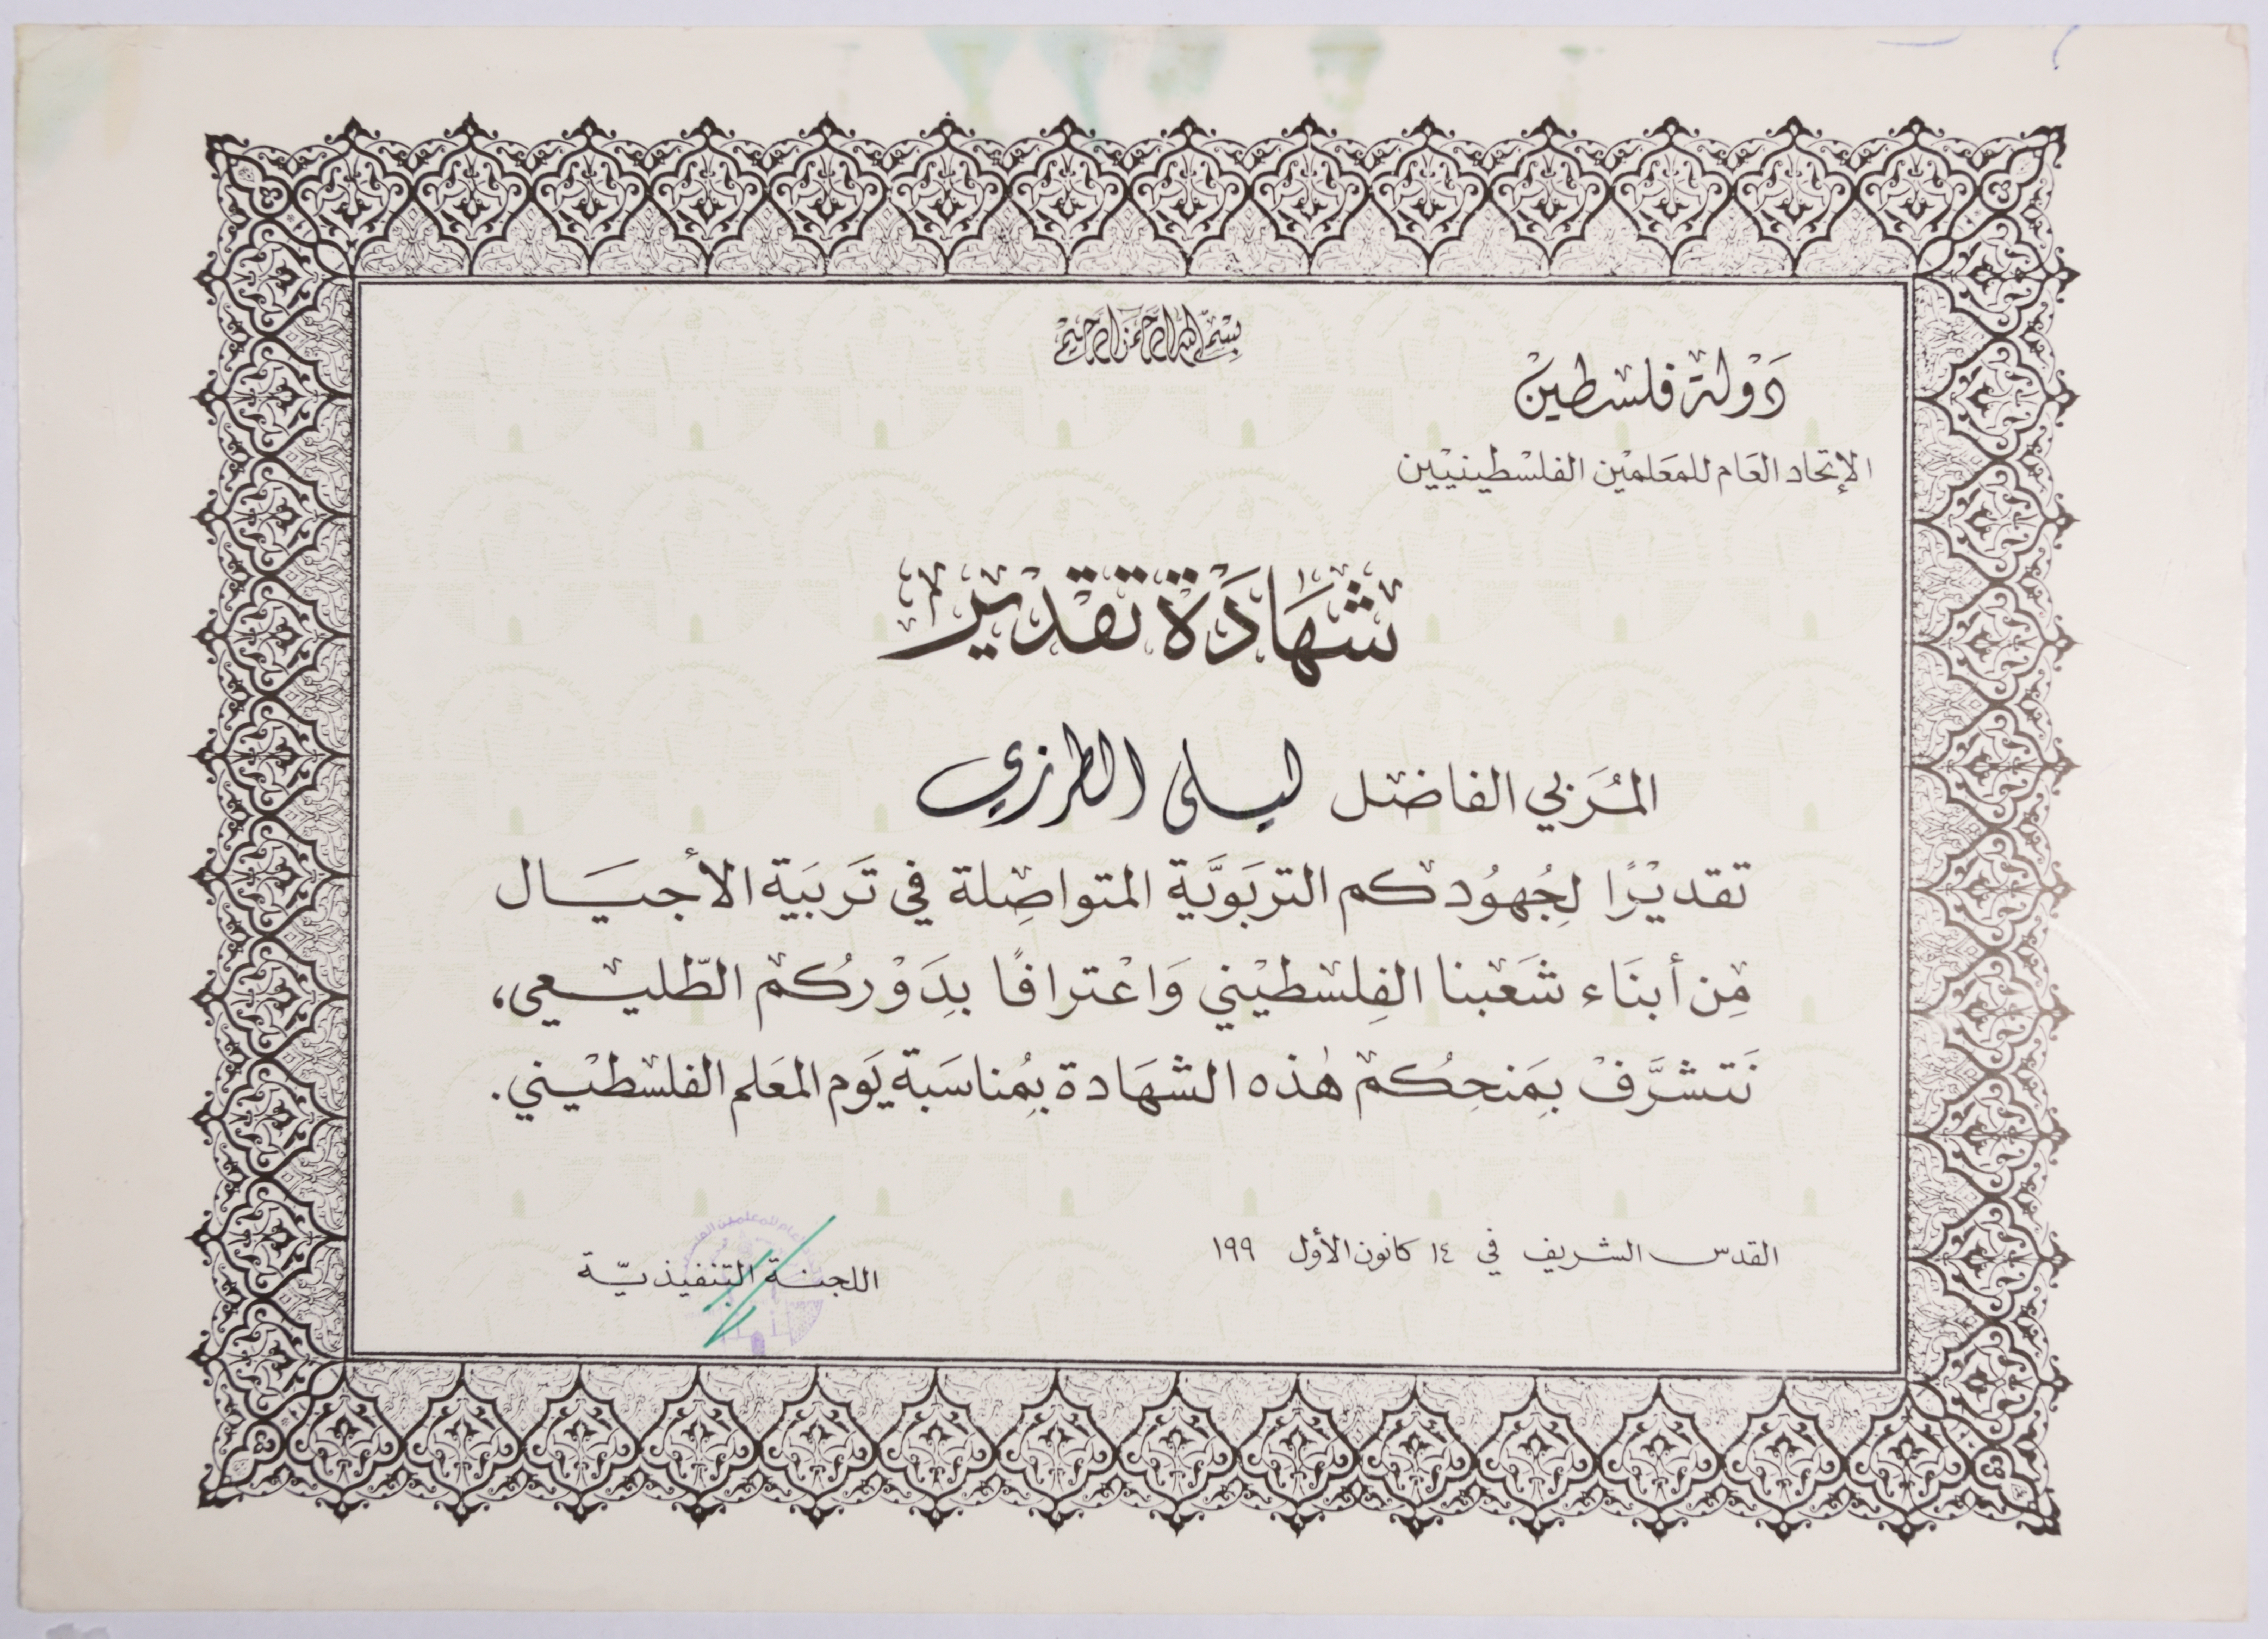 بسم الله الرحمن الرحيم
دَوْلة فلسطين
الإتحاد العَام للمعَلمين الفلسْطينيين
شَهَادَة تقدير
المُرَبي الفاضل ليلى الطرزي
تقديْرًا لِجُهوُدكم التربَوَيَّة المتواصِلة في تَربيَة الأجيَال
مِن أبنَاء شَعَبنا الفِلسْطيْني وَاعْترافًا بِدَوْركُم الطّليعي،
نَتشرَّفْ بِمَنحِكُمْ هٰذه الشهَادة بمُناسَبة يَوم المعَلم الفلسْطيْني.
القدس الشريف في ١٤ كانون الأول ١٩٩
اللجنة التنفيذيّة